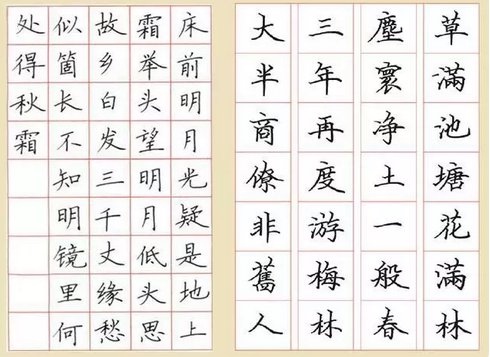 草滿池塘花滿林
塵寰净土一般春
三年再度游梅林
大半商僚非舊人
床前明月光疑是地上
霜举头望明月低头思
故乡白发三千丈缘愁
似箇长不知明镜里何
处得秋霜